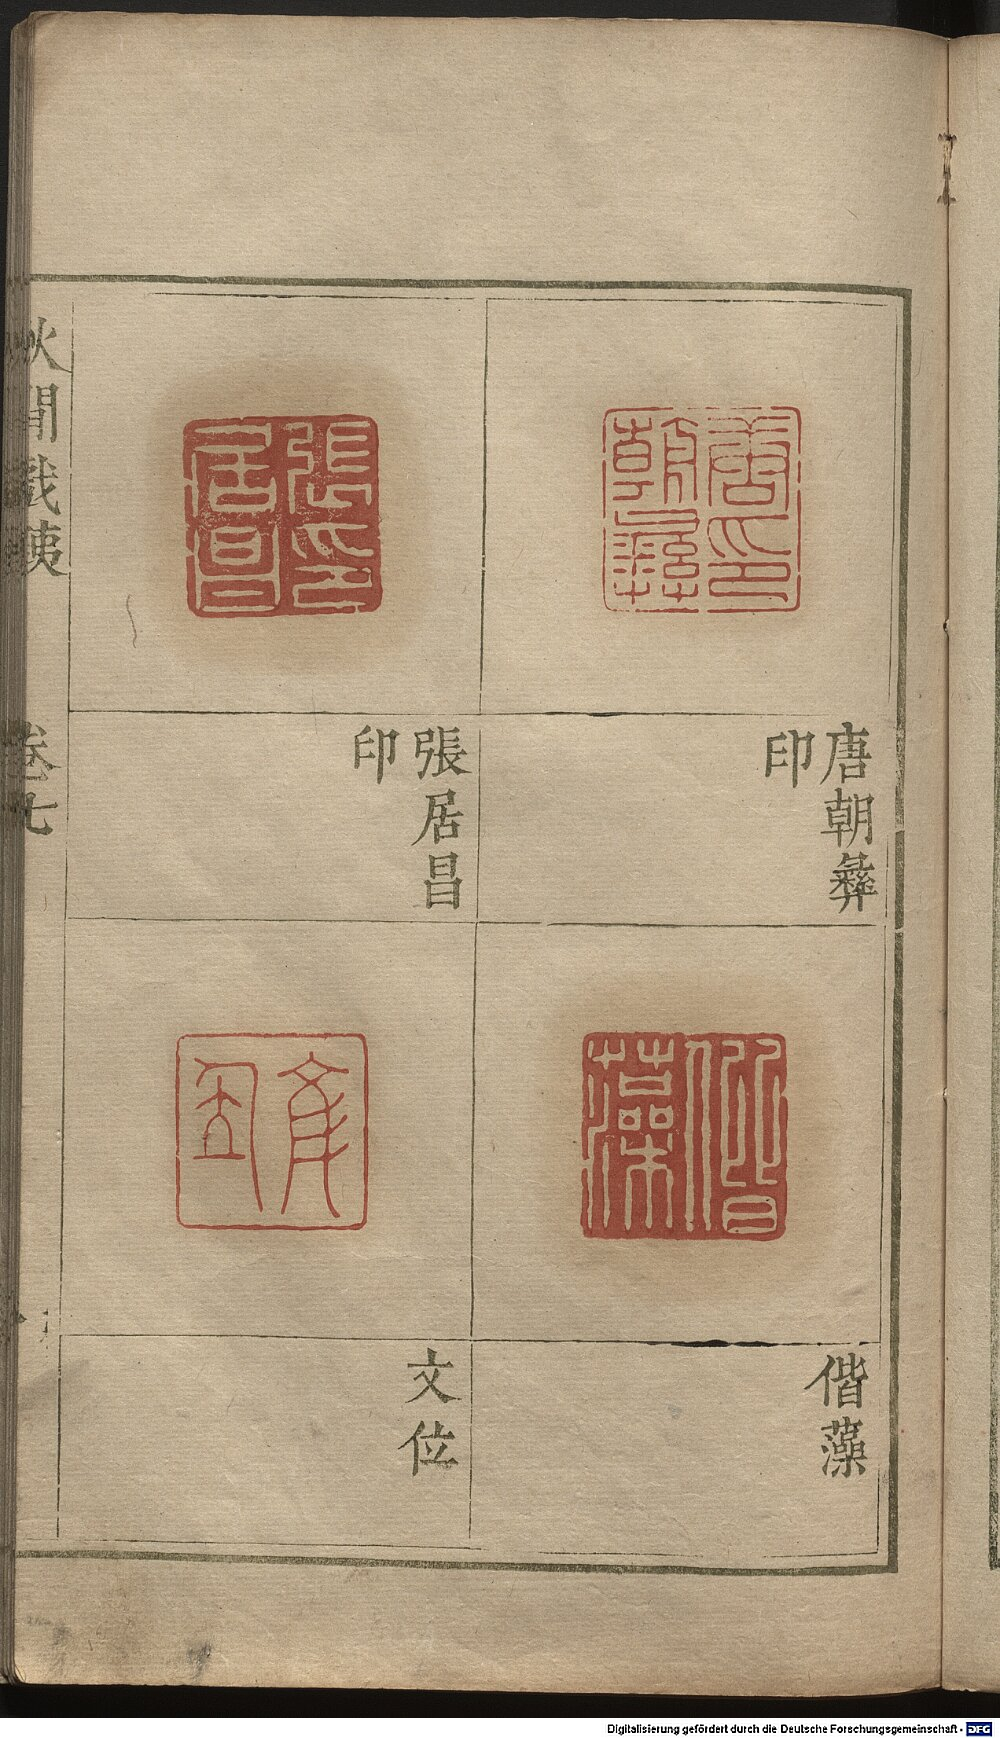 唐朝彝
印
張居昌
印
偕藻
文位
秋間戲鐵
卷七
Digitalisierung gefördert durch die Deutsche Forschungsgemeinschaft - DFG